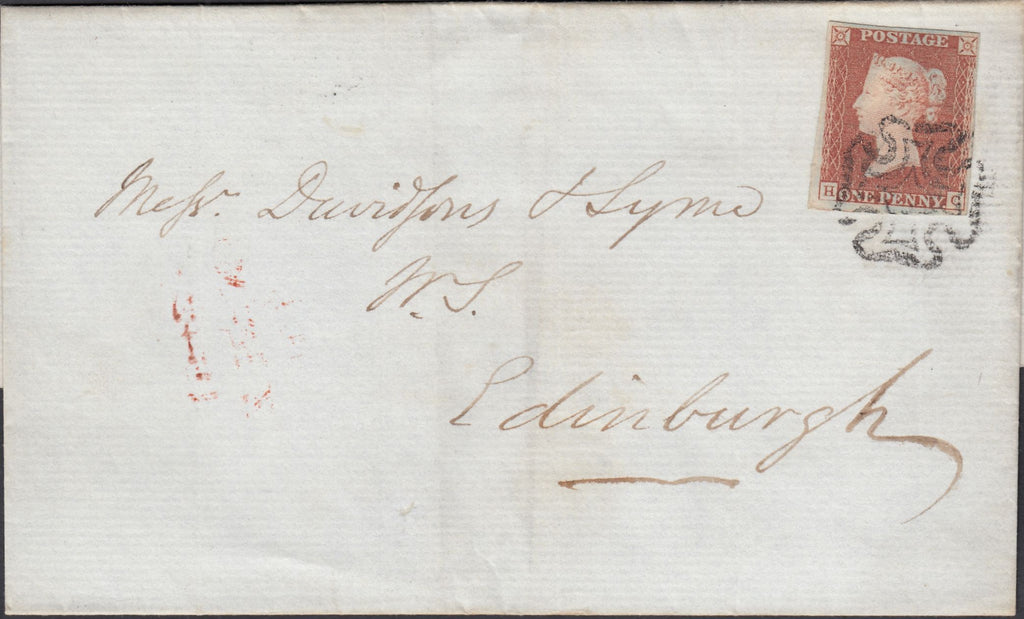 POSTAGE
H ONE PENNY G
Messrs. Davidsons & Syme
W.S.
Edinburgh